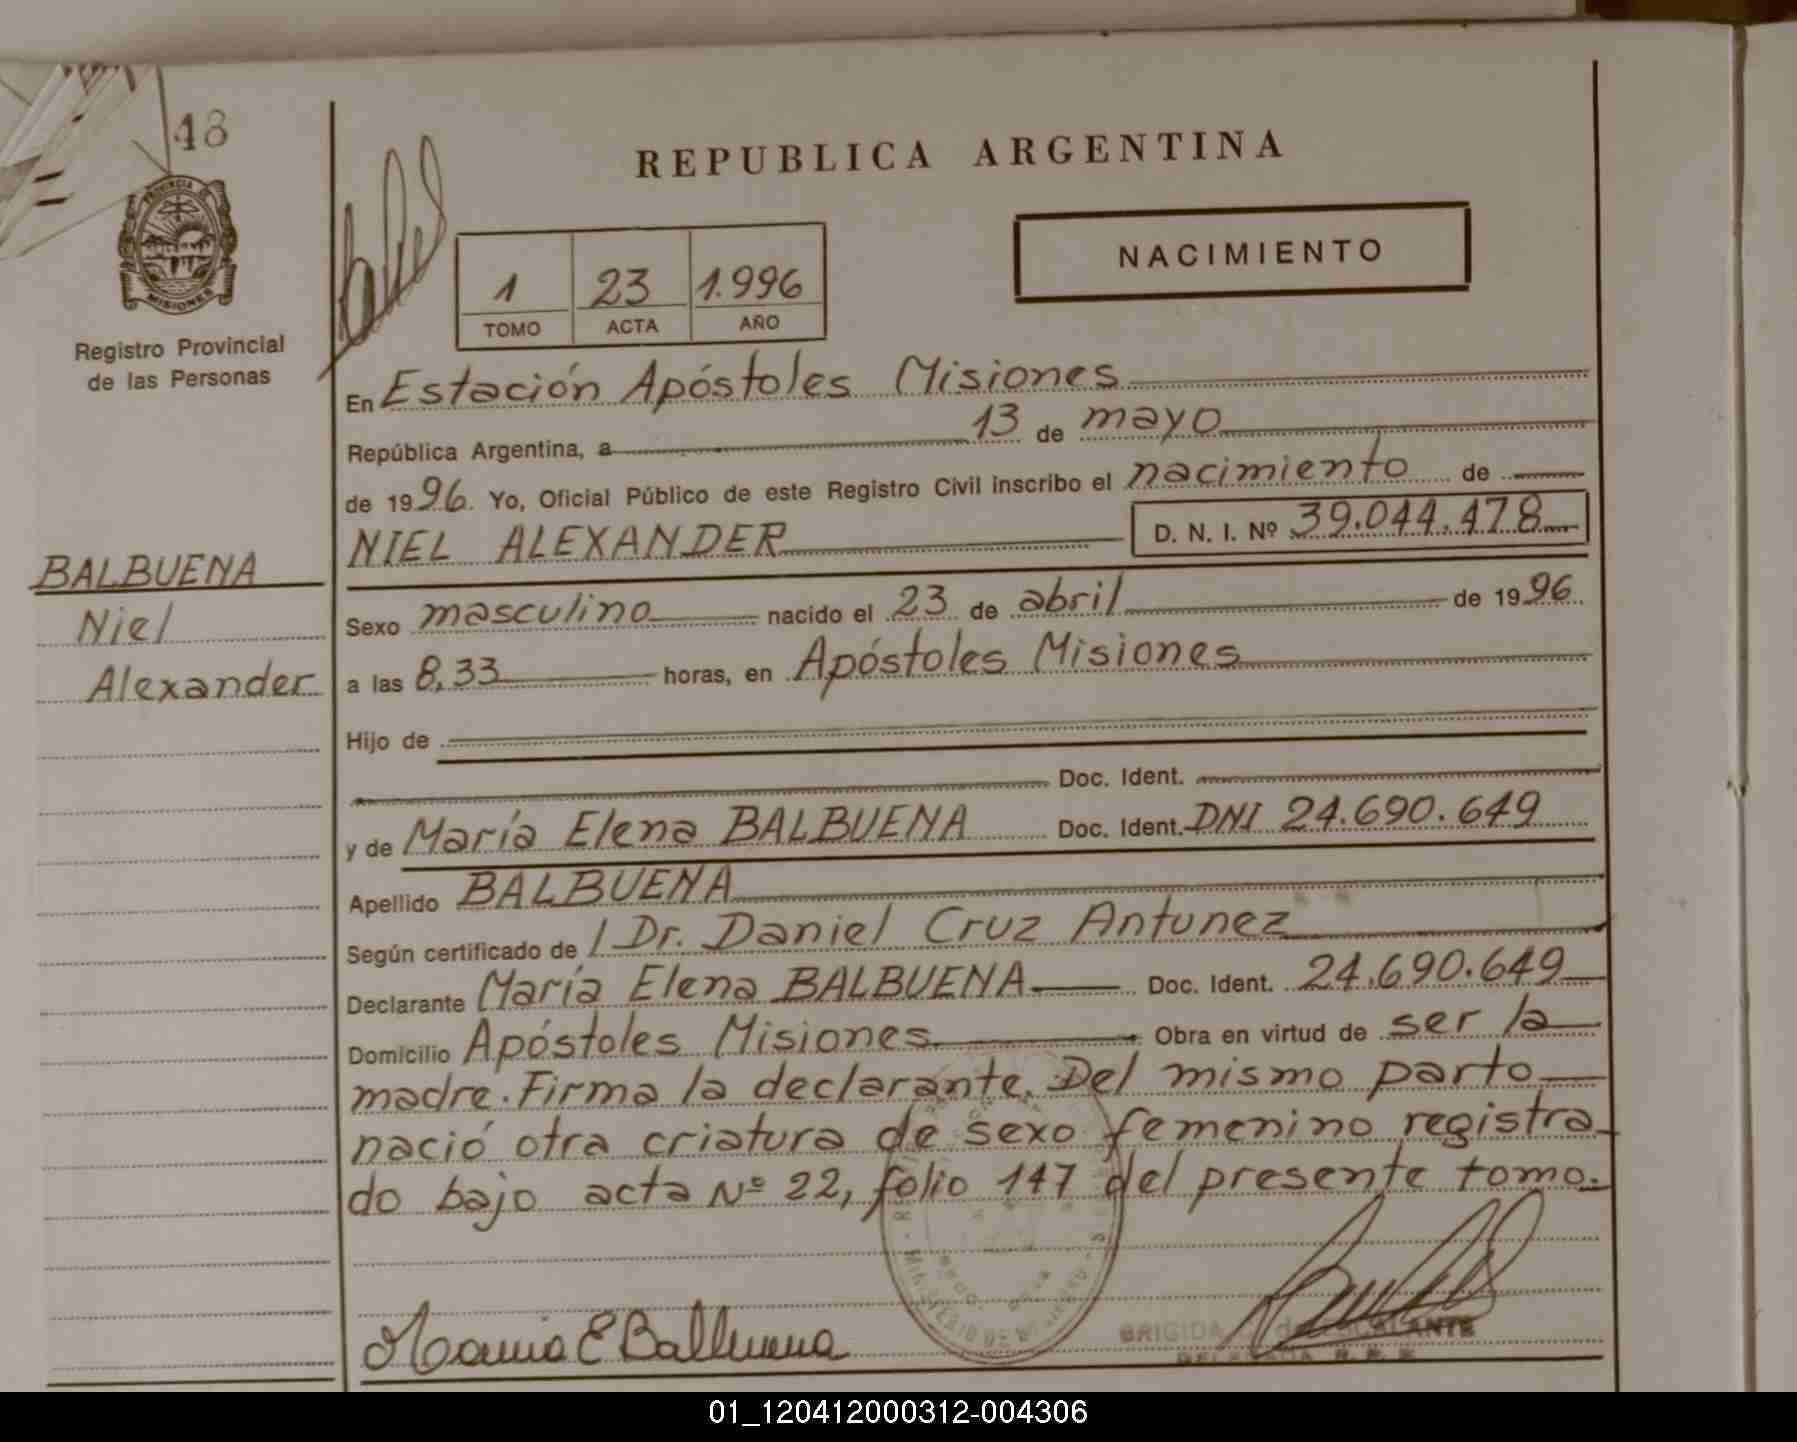 48
REPUBLICA ARGENTINA
PROVINCIA DE
MISIONES
NACIMIENTO
1 23 1.996
TOMO ACTA AÑO
Registro Provincial
de las Personas
En Estación Apóstoles Misiones
República Argentina, a 13 de mayo
de 1996. Yo, Oficial Público de este Registro Civil inscribo el nacimiento de
NIEL ALEXANDER D. N. I. Nº 39.044.478
BALBUENA
Niel
Alexander
Sexo masculino nacido el 23 de abril de 1996.
a las 8,33 horas, en Apóstoles Misiones
Hijo de
Doc. Ident.
y de María Elena BALBUENA Doc. Ident. DNI 24.690.649
Apellido BALBUENA
Según certificado de Dr. Daniel Cruz Antunez
Declarante María Elena BALBUENA Doc. Ident. 24.690.649
Domicilio Apóstoles Misiones Obra en virtud de ser la
madre. Firma la declarante. Del mismo parto
nació otra criatura de sexo femenino registra
do bajo acta Nº 22, folio 147 del presente tomo.
Maria E Balbuena
BRIGIDA
DELEGADA
01_120412000312-004306